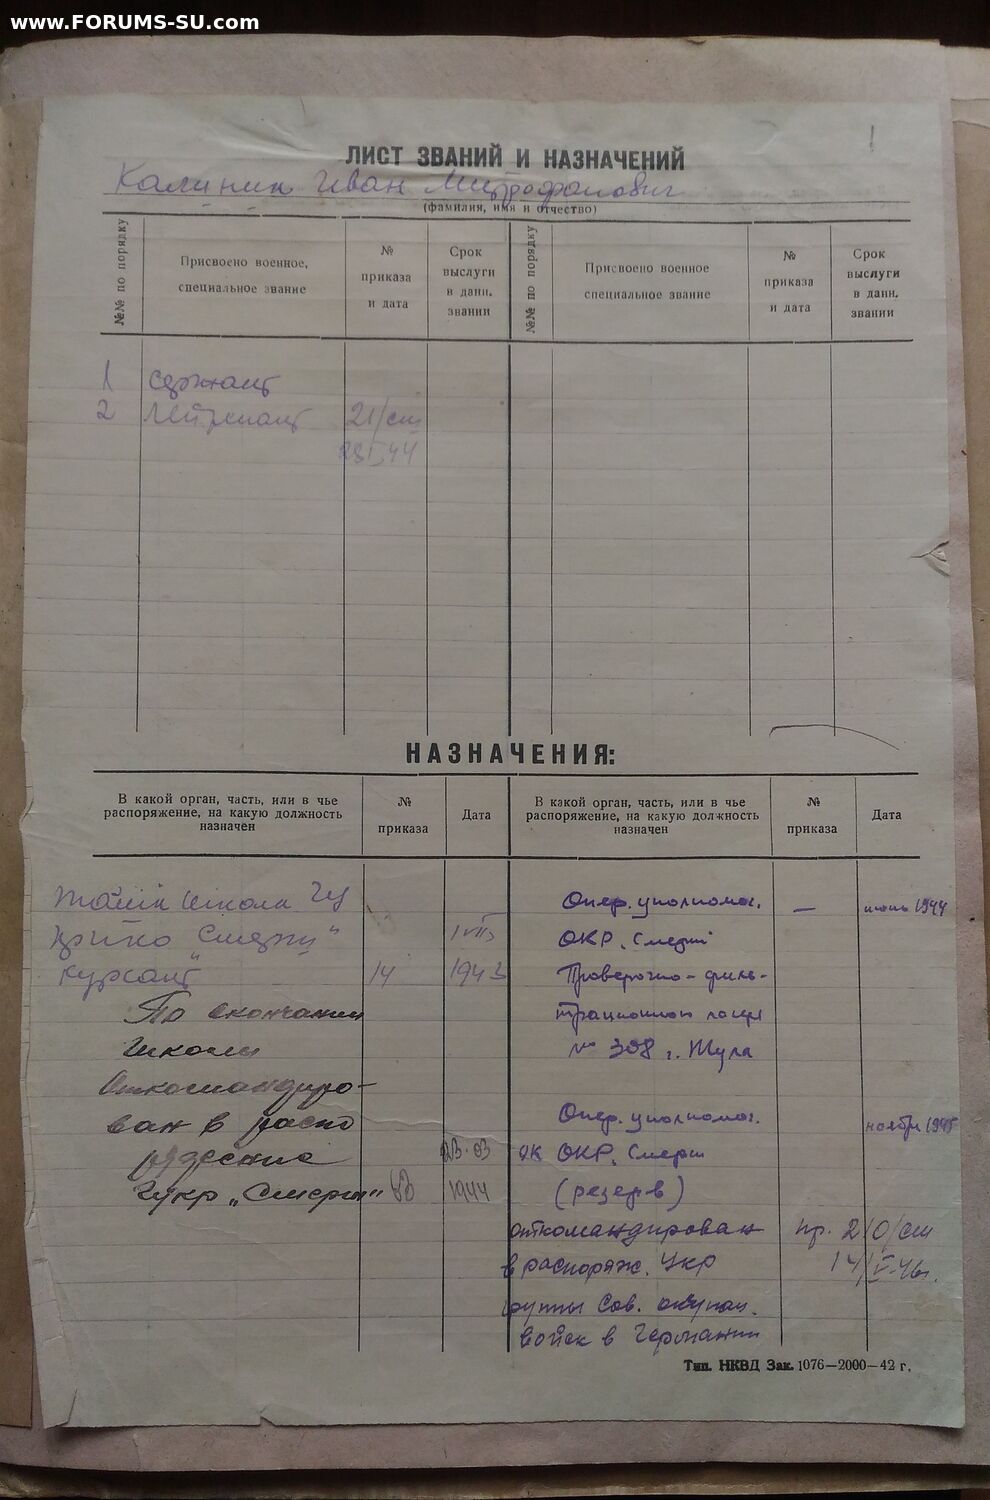 www.FORUMS-SU.com
1
ЛИСТ ЗВАНИЙ И НАЗНАЧЕНИЙ
Калинин Иван Митрофанович
(фамилия, имя и отчество)
№№ по порядку
Присвоено военное,
специальное звание
№
приказа
и дата
Срок
выслуги
в данн.
звании
№№ по порядку
Присвоено военное
специальное звание
№
приказа
и дата
Срок
выслуги
в данн.
звании
1 сержант
2 лейтенант 21/см
44
НАЗНАЧЕНИЯ:
В какой орган, часть, или в чье
распоряжение, на какую должность
назначен
№
приказа
Дата
В какой орган, часть, или в чье
распоряжение, на какую должность
назначен
№
приказа
Дата
школа
Смерш"
курсант 14 1943
По окончании
школы
откомандиро-
ван в распо
ряжение 23.03
Гукр „Смерш" 1944
Опер. уполномоч. — 1944
ОКР. Смерш
Проверочно-филь-
трационного лагеря
№ 308 г. Тула
Опер. уполномоч. ноябрь 1945
ОКР. Смерш
(резерв)
откомандирован пр. 210/см
в распоряж. УКР 14/
группы Сов. оккупац.
войск в Германии
Тип. НКВД Зак. 1076—2000—42 г.